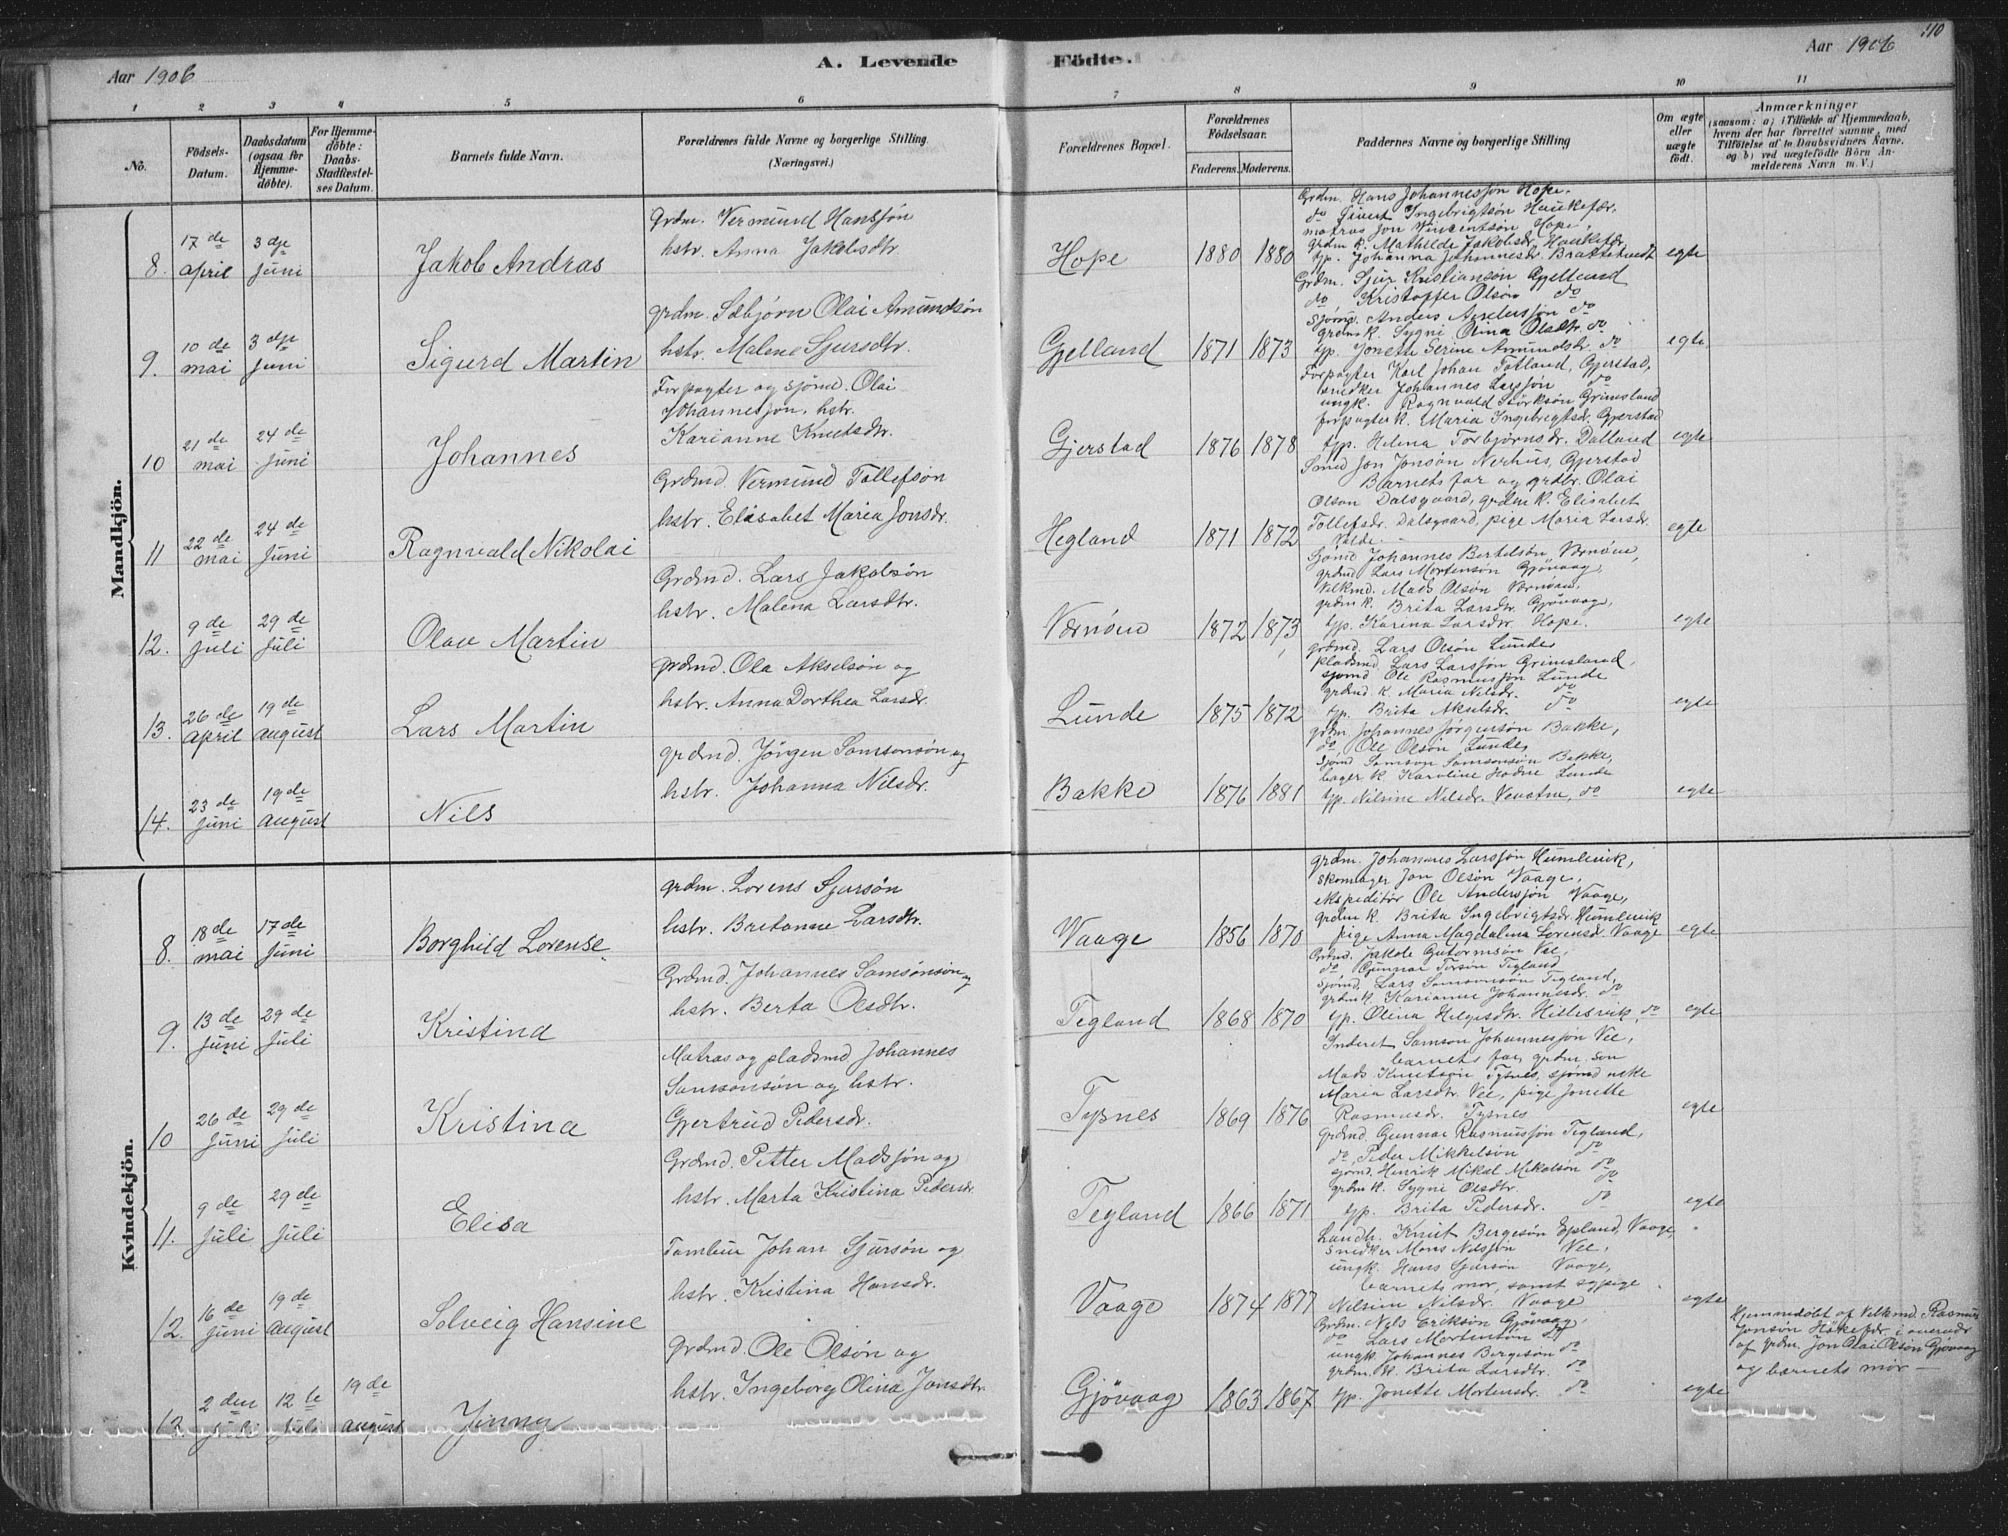 Aar 1906
A. Levende
Födte.
Aar 1906
110
1 2 3 4 5 6 7 8 9 10 11
No.
Födsels-Datum.
Daabsdatum (ogsaa for Hjemme-döbte).
For Hjemme-döbte: Daabs-Stadfæstel-ses Datum.
Barnets fulde Navn.
Forældrenes fulde Navne og borgerlige Stilling.
(Næringsvei.)
Forældrenes Bopæl.
Forældrenes Födselsaar.
Faderens. Moderens.
Faddernes Navne og borgerlige Stilling
Om ægte eller uægte födt.
Anmærkninger
(saasom: a) i Tilfælde af Hjemmedaab, hvem der har forrettet samme, med Tilföielse af to Daabsvidners Navne, og b) ved uægtefödte Börn An-melderens Navn m. V.)
Mandkjön.
8.
17de april
3dje Juni
Jakob Andras
Grdm. Vermund Hansjøn
hstr. Anna Jakobsdtr.
Hope
1880 1880
Grdm. Hans Johannesjøn Hope.
do Sivert Ingebrigtsøn Haukefær,
matros Jon Vincentsøn Hope,
grdm k. Mathilde Jakobsdr. Haukefær
tp. Johanna Johannesdr. Brattetveidt
egte
9.
10de mai
3dje Juni
Sigurd Martin
grdm. Sæbjørn Olai Amundsøn
hstr. Malene Sjursdtr.
Gjelland
1871 1873
Grdm. Sjur Kristiansøn Gjelland
do Kristoffer Olsøn do
Sjømd. Anders Andersjøn do
grdm k. Sygni Olina Olsdtr. do
tp. Jonette Serine Amundsdtr. do
egte
10
21de mai
24de Juni
Johannes
Forpagter og sjømd. Olai
Johannesjøn, hstr.
Karianne Knutsdtr.
Gjerstad
1876 1878
Forpagter Karl Johan Totland, Gjerstad,
snedker Johannes Larsjøn do
ungk. Ragnvald Størksøn Grimsland
forpagter k. Maria Ingebrigtsdr. Gjerstad
tp. Helena Torbjørnsdr. Dalland
egte
11
22de mai
24de Juni
Ragnvald Nikolai
Grdmd. Vermund Tollefsøn
hstr. Elisabet Maria Jonsdr.
Hegland
1871 1872
Smed Jon Jonsøn Nerhus, Gjerstad
Barnets far og grdbr. Olai
Olson Dalsgaard, grdm k. Elisabet
Tollefsdr. Dalsgaard, pige Maria Larsdr.
egte
12.
9de Juli
29de Juli
Olav Martin
Grdmd. Lars Jakobsøn
hstr. Malena Larsdtr.
Værnøen
1872 1873
Sjømd Johannes Bertelsøn Værnøen,
grdmd Lars Mortensøn Gjøvaag,
Vilkmd. Mads Olsøn Værnøen,
grdm k. Brita Larsdtr. Gjøvaag,
tp. Karina Larsdtr. Hope.
egte
13.
26de april
19de august
Lars Martin
grdmd. Ola Akselsøn og
hstr. Anna Dorthea Larsdr.
Lunde
1875 1872
grdmd. Lars Olsøn Lunde,
pladsmd. Lars Larsjøn Grimsland,
sjømd Ole Rasmusjøn Lunde
grdmd k. Maria Nilsdr. do
tp. Brita Akselsdr. do
egte
14.
23de Juni
19de august
Nils
grdmd. Jørgen Samsonsøn og
hstr. Johanna Nilsdr.
Bakke
1876 1881
grdm Johannes Jørgensøn Bakke,
do Ole Olsøn Lunde,
Sjømd Samson Samsonsøn Bakke,
bager k. Karoline Hodne Lunde
tp. Nilsine Nilsdr. Vevatne, do
egte
Kvindekjön.
8.
18de mai
17de Juni
Borghild Lorense.
grdm. Lorens Sjursøn
hstr. Britanne Larsdtr.
Vaage
1856 1870
grdm. Johannes Larsjøn Humlevik,
skomager Jon Olsøn Vaage,
ekspeditør Ole Andersjøn Vaage,
grdm k. Brita Ingebrigtsdr. Humlevik
pige Anna Magdalina Lorensdr. Vaage
egte
9.
13de Juni
29de Juli
Kristina
Grdmd. Johannes Samsønsøn og
hstr. Berta Olsdtr.
Tegland
1868 1870
Grdmd. Jakob Gutormsøn Vee,
do Gunnar Torsøn Tegland
sjømd. Lars Samsonsøn Tegland,
grdm k. Karianne Johannesdr. do
tp. Olina Helgesdtr. Hillesvik, do
egte
10
26de Juni
29de Juli
Kristina
Matros og pladsmd. Johannes
Samsonsøn og hstr.
Gjertrud Pedersdr.
Tysnes
1869 1876
Inderst Samson Johannesjøn Vee,
barnets far, grdm. søn
Mads Knutsøn Tysnes, sjømd enke
Maria Larsdtr. Vee, pige Jonette
Rasmusdr. Tysnes
egte
11.
9de Juli
29de Juli
Elisa
Grdmd. Petter Madsjøn og
hstr. Marta Kristina Pedersdr.
Tegland
1866 1871
Grdmd. Gunnar Rasmusjøn Tegland,
do, Peder Mikkelsøn do
sjømd. Henrik Mikal Mikalsøn do
grdm k. Sygni Olsdtr. do
tp. Brita Pedersdr. do
egte
12.
16de Juni
19de august
Solveig Hansine
Tambur Johan Sjursøn og
hstr. Kristina Hansdr.
Vaage
1874 1877
Landh. Knut Bergesøn Epland, Vaage,
Snedker Mons Nilsjøn Vee,
ungk. Hans Sjursøn Vaage,
barnets mor, samt sypige
Nilsine Nilsdr. Vaage
egte
13.
2den Juli
12te Juli
19de august
Jenny
Grdmd Ole Olsøn og
hstr. Ingeborg Olina Jonsdtr.
Gjøvaag
1863 1867
Grdm. Nils Eriksøn Gjøvaag,
do Lars Mortensøn do
ungk Johannes Bergesøn do
grdm. k. Brita Larsdtr. do
tp. Jonette Mortensdr. do
egte
Hjemmedøbt af Vilkmd. Rasmus
Jonsøn Hökefdr. i overvær
af grdm. Jon Olai Olsøn Gjøvaag
og barnets mor —